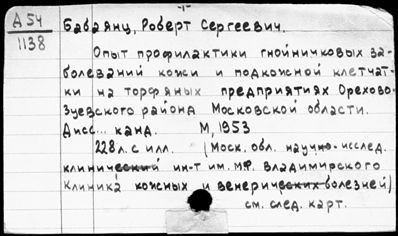 А 54
1138
Бабаянц, Роберт Сергеевич.
Опыт профилактики гнойничковых за-
болеваний кожи и подкожной клетчат-
ки на торфяных предприятиях Орехово-
Зуевского района Московской области.
Дисс... канд. М, 1953
228л. с илл. (Моск. обл. научно-исслед.
клинический ин-т им. МФ. Владимирского
Клиника кожных и венерических болезней)
см. след. карт.